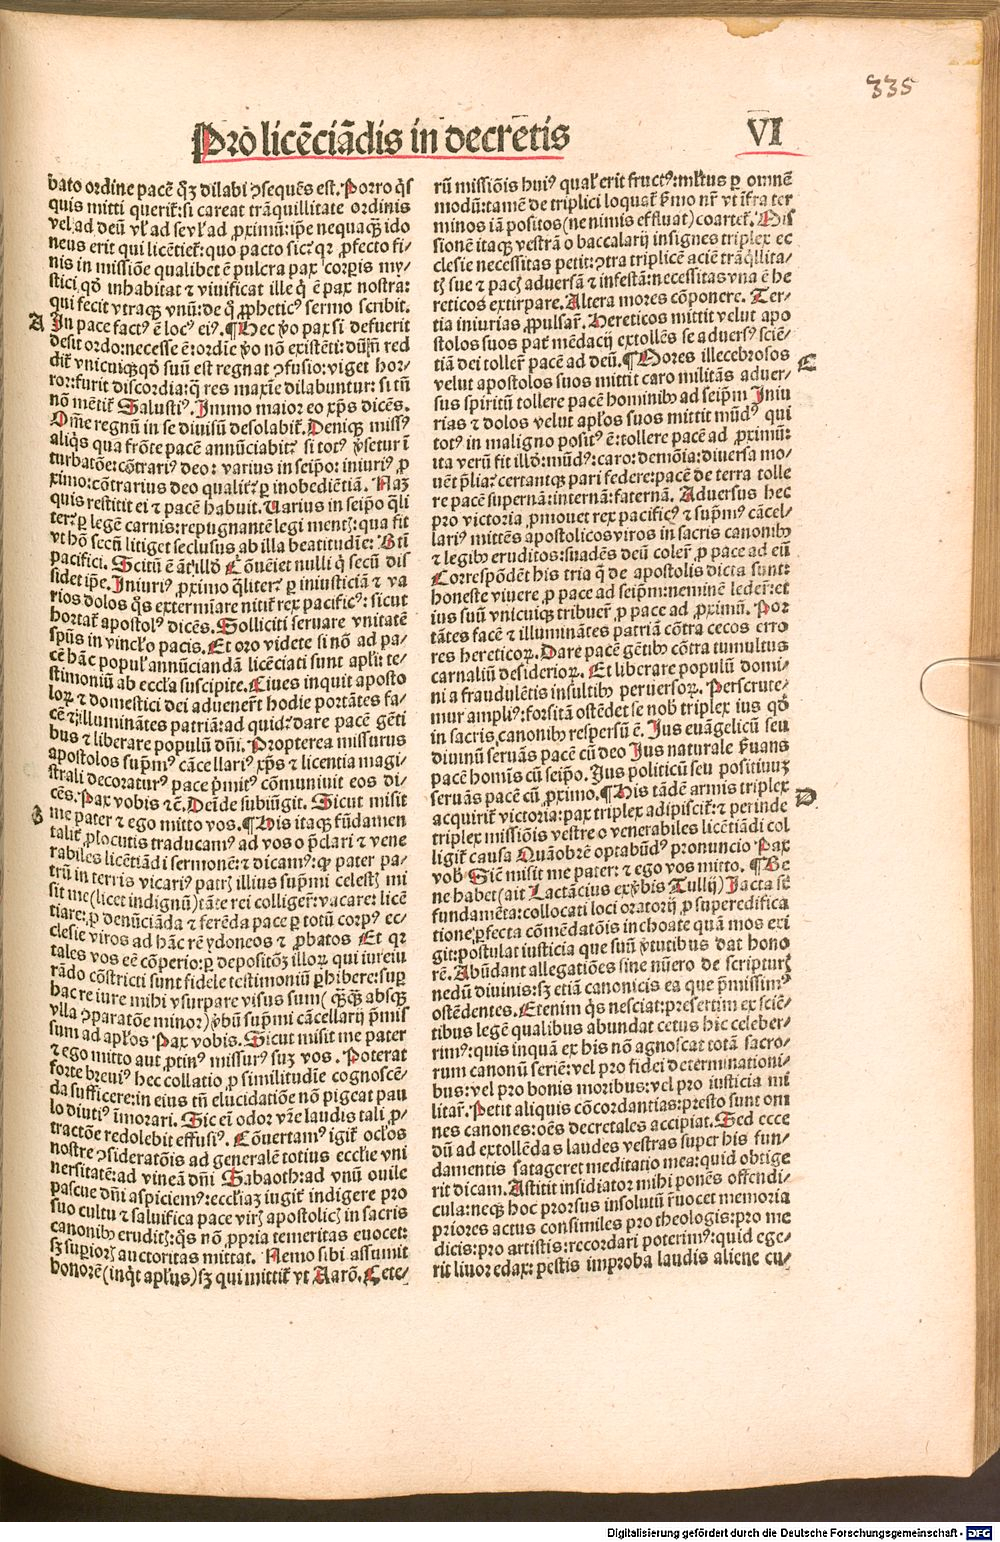 335
Pro licẽciãdis in decretis
VI
bato ordine pacẽ q̃ꝫ dilabi ↄsequẽs est. Porro q̃s
quis mitti querit̃: si careat trãquillitate ordinis
vel ad deũ vl̃ ad se vl̃ ad ꝓximũ: ip̃e nequaqꝫ ido
neus erit qui licẽtiet̃: quo pacto sic? qꝛ ꝓfecto fi⸗
nis in missiõe qualibet ẽ pulcra pax corꝑis my⸗
stici qd̃ inhabitat ⁊ viuificat ille q̃ ẽ pax nostra:
qui fecit vtraqꝫ vnũ: de q̃ ꝓphetic⁹ sermo scribit.
A
In pace fact⁹ ẽ loc⁹ ei⁹. ¶ Hec ṽo pax si defuerit
desit ordo: necesse ẽ: ordĩe ṽo nõ existẽti: dũm̃ red
dit̃ vnicuiqꝫ qd̃ suũ est regnat ↄfusio: viget hor⸗
ror: furit discordia: q̃ res maxĩe dilabuntur: si tñ
nõ mẽtit̃ Salusti⁹. Immo maior eo xp̃s dicẽs.
Om̃e regnũ in se diuisũ desolabit̃. Deniqꝫ miss⁹
aliq̃s qua frõte pacẽ annũciabit? si tot⁹ ṽsetur ĩ
turbatõe: cõtrari⁹ deo: varius in seip̃o: iniuri⁹ ꝓ
ximo: cõtrarius deo qualit̃? ꝑ inobediẽtiã. Naꝫ
quis restitit ei ⁊ pacẽ habuit. Uarius in seip̃o q̃li
ter? ꝑ legẽ carnis: repugnantẽ legi mentꝭ: qua fit
vt hõ secũ litiget seclusus ab illa beatitudĩe: Bt̃i
pacifici. Scitũ ẽ at̃ illd̃ Cõueiet nulli q̃ secũ dis
sidet ip̃e. Iniuri⁹ ꝓximo q̃liter? ꝑ iniusticiã ⁊ va
rios dolos q̃s extermiare nitit̃ rex pacific⁹: sicut
hortat̃ apostol⁹ dicẽs. Solliciti seruare vnitatẽ
sp̃us in vincl̃o pacis. Et oro videte si nõ ad pa⸗
cẽ hãc popul⁹ annũciandã licẽciati sunt apl̃i: te⸗
stimoniũ ab eccl̃a suscipite. Ciues inquit aposto
loꝝ ⁊ domestici dei aduenert̃ hodie portãtes fa⸗
cẽ ⁊ illuminãtes patriã: ad quid? dare pacẽ gẽti
bus ⁊ liberare populũ dñi. Propterea missurus
apostolos supm̃⁹ cãcellari⁹ xp̃s ⁊ licentia magi⸗
strali decoratur⁹ pace p̃mit⁹ cõmuniuit eos di⸗
cẽs. Pax vobis ⁊c̃. Deĩde subiũgit. Sicut misit
B
me pater ⁊ ego mitto vos. ¶ His itaqꝫ fũdamen
talit̃ ꝓlocutis traducam⁹ ad vos o p̃clari ⁊ vene
rabiles licẽtiãdi sermonẽ: ⁊ dicam⁹: ꝙ pater pa⸗
trũ in terris vicari⁹ patrꝭ illius sup̃mi celestꝭ mi
sit me (licet indignũ) tãte rei colliger̃: vacare: licẽ
tiare: ꝑ denũciãda ⁊ ferẽda pace ꝑ totũ corp⁹ ec⸗
clesie viros ad hãc rẽ ydoneos ⁊ ꝓbatos Et qꝛ
tales vos eẽ cõperio: ꝑ depositõꝫ illoꝝ qui iureiu
rãdo cõstricti sunt fidele testimoniũ ꝑhibere: suꝑ
hac re iure mihi vsurpare visus sum ( qꝫqꝫ absqꝫ
vlla ↄparatõe minor) ṽbũ sup̃mi cãcellarij p̃mis
sum ad apl̃os Pax vobis. Sicut misit me pater
⁊ ego mitto aut ꝓtin⁹ missur⁹ suꝫ vos. Poterat
forte breui⁹ hec collatio ꝓ similitudĩe cognoscẽ⸗
da sufficere: in eius tñ elucidatiõe nõ pigeat pau
lo diuti⁹ ĩmorari. Sic eĩ odor vr̃e laudis tali ꝓ⸗
tractõe redolebit effusi⁹. Cõuertam⁹ igit̃ ocl̃os
nostre ↄsideratõis ad generalẽ totius eccl̃ie vni
uersitatẽ: ad vineã dñi Sabaoth: ad vnũ ouile
pascue dñi aspiciem⁹: eccl̃iaꝫ iugit̃ indigere pro
suo cultu ⁊ saluifica pace virꝭ apostolicꝭ in sacris
canonibꝰ eruditꝭ: q̃s nõ ꝓpria temeritas euocet:
sꝫ superiorꝭ auctoritas mittat. Nemo sibi assumit
honorẽ (inq̃t apl̃us) sꝫ qui mittit̃ vt Aarõ. Cete⸗
rũ missiõis hui⁹ qual̃ erit fruct⁹: ml̃tus ꝑ omnẽ
modũ: tamẽ de triplici loquat̃ p̃mo nr̃ vt ĩfra ter
minos iã positos (ne nimis effluat) coartet̃. Mis
sionẽ itaqꝫ vestrã o baccalarij insignes triplex ec
clesie necessitas petit: ↄtra triplicẽ aciẽ trãq̃llita⸗
tꝭ sue ⁊ pacꝭ aduersã ⁊ infestã: necessitas vna ẽ he
reticos extirpare. Altera mores cõponere. Ter⸗
tia iniurias ꝓpulsar̃. Hereticos mittit velut apo
stolos suos pat̃ mẽdacij extollẽs se aduers⁹ sciẽ⸗
tiã dei toller̃ pacẽ ad deũ. ¶ Mores illecebrosos
C
velut apostolos suos mittit caro militãs aduer⸗
sus spiritũ tollere pacẽ hominibꝰ ad seip̃m Iniu
rias ⁊ dolos velut apl̃os suos mittit mũd⁹ qui
tot⁹ in maligno posit⁹ ẽ: tollere pacẽ ad ꝓximũ:
ita verũ fit illd̃: mũd⁹: caro: demõia: diuersa mo⸗
uẽt p̃lia: certantqꝫ pari federe: pacẽ de terra tolle
re pacẽ supernã: internã: faternã. Aduersus hec
pro victoria ꝓmouet rex pacific⁹ ⁊ sup̃m⁹ cãcel⸗
lari⁹ mittẽs apostolicos viros in sacris canonibꝰ
⁊ legibꝰ eruditos: suadẽs deũ coler̃ ꝓ pace ad eũ
Correspõdẽt his tria q̃ de apostolis dicta sunt:
honeste viuere ꝓ pace ad seip̃m: neminẽ leder̃: et
ius suũ vnicuiqꝫ tribuer̃ ꝓ pace ad ꝓximũ. Por
tãtes facẽ ⁊ illuminãtes patriã cõtra cecos erro
res hereticoꝝ. Dare pacẽ gẽtibꝰ cõtra tumultus
carnaliũ desiderioꝝ. Et liberare populũ domi⸗
ni a fraudulẽtis insultibꝰ peruersoꝝ. Perscrute⸗
mur ampli⁹: forsitã ostẽdet se nob̃ triplex ius qd̃
in sacris canonibꝰ respersũ ẽ. Ius euãgelicũ seu
diuinũ seruãs pacẽ cũ deo Ius naturale p̃uans
pacẽ homĩs cũ seip̃o. Ius politicũ seu positiuuꝫ
seruãs pacẽ cũ ꝓximo. ¶ His tãdẽ armis triplex
D
acquirit̃ victoria: pax triplex adipiscit̃: ⁊ perinde
triplex missiõis vestre o venerabiles licẽtiãdi col
ligit̃ causa Quãobrẽ optabũd⁹ pronuncio Pax
vob̃ Sicut̃ misit me pater: ⁊ ego vos mitto. ¶ Be
ne habet (ait Lactãcius ex ṽbis Tullij) Iacta st̃
fundamẽta: collocati loci oratorij ꝓ superedifica
tione ꝑfecta cõmẽdatõis inchoate quã mos exi
git: postulat iusticia que suũ ṽtutibus dat hono
rẽ. Abũdant allegatiões sine nũero de scripturꝭ
nedũ diuinis: sꝫ etiã canonicis ea que p̃missim⁹
ostẽdentes. Etenim q̃s nesciat: presertim ex sciẽ⸗
tibus legẽ qualibus abundat cetus hic celeber⸗
rim⁹: quis inquã ex his nõ agnoscat totã sacro⸗
rum canonũ seriẽ: vel pro fidei determinationi⸗
bus: vel pro bonis moribus: vel pro iusticia mi
litar̃. Petit aliquis cõcordantias: presto sunt om
nes canones: oẽs decretales accipiat. Sed ecce
dũ ad extollẽdas laudes vestras super his fun⸗
damentis satageret meditatio mea: quid obtige
rit dicam. Astitit insidiator mihi ponẽs offendi⸗
cula: neqꝫ hoc prorsus insolutũ r̃uocet memoria
priores actus consimiles pro theologis: pro me
dicis: pro artistis: recordari poterim⁹: quid ege⸗
rit liuor edax: pestis improba laudis aliene cu⸗
Digitalisierung gefördert durch die Deutsche Forschungsgemeinschaft - DFG